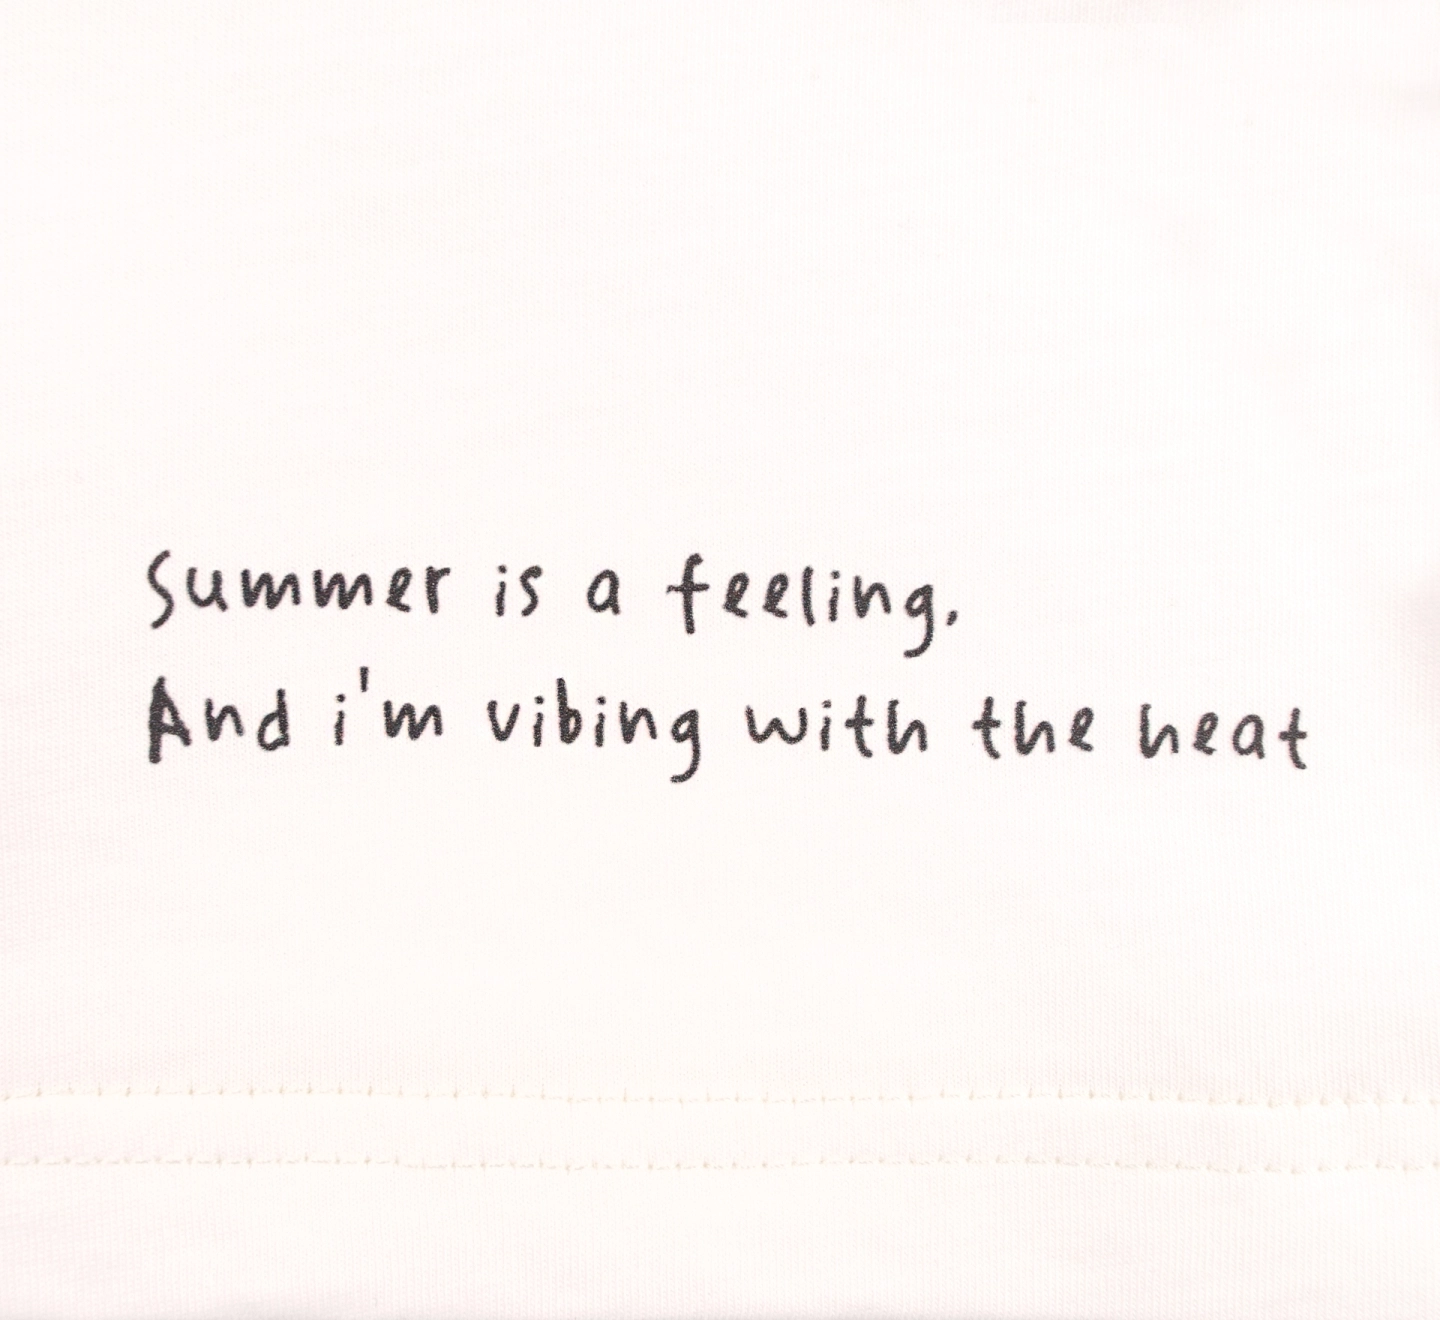 Summer is a feeling,
And i'm vibing with the heat